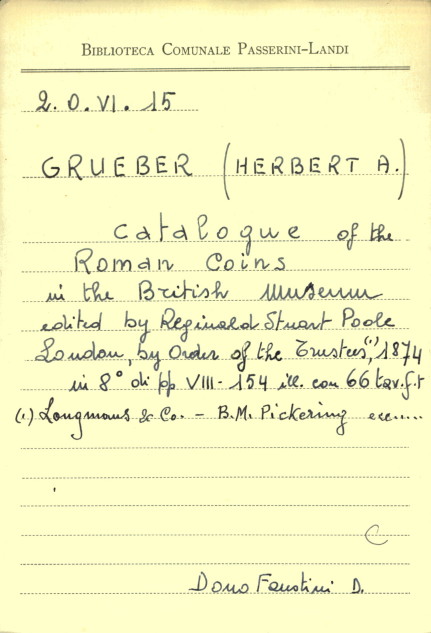 BIBLIOTECA COMUNALE PASSERINI-LANDI
2. O. VI. 15
GRUEBER (HERBERT A.)
Catalogue of the
Roman Coins
in the British Museum
edited by Reginald Stuart Poole
London, by Order of the Trustees,⁽¹⁾ 1874
in 8° di pp VIII - 154 ill. con 66 tav. f. t
(1) Longmans & Co. - B.M. Pickering ecc.....
C
Dono Faustini D.